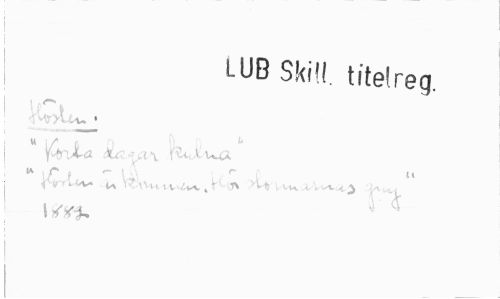 LUB Skill. titelreg.
Hösten.
"Korta dagar kulna"
"Hösten är kommen. Hör stormarnas gny"
1882